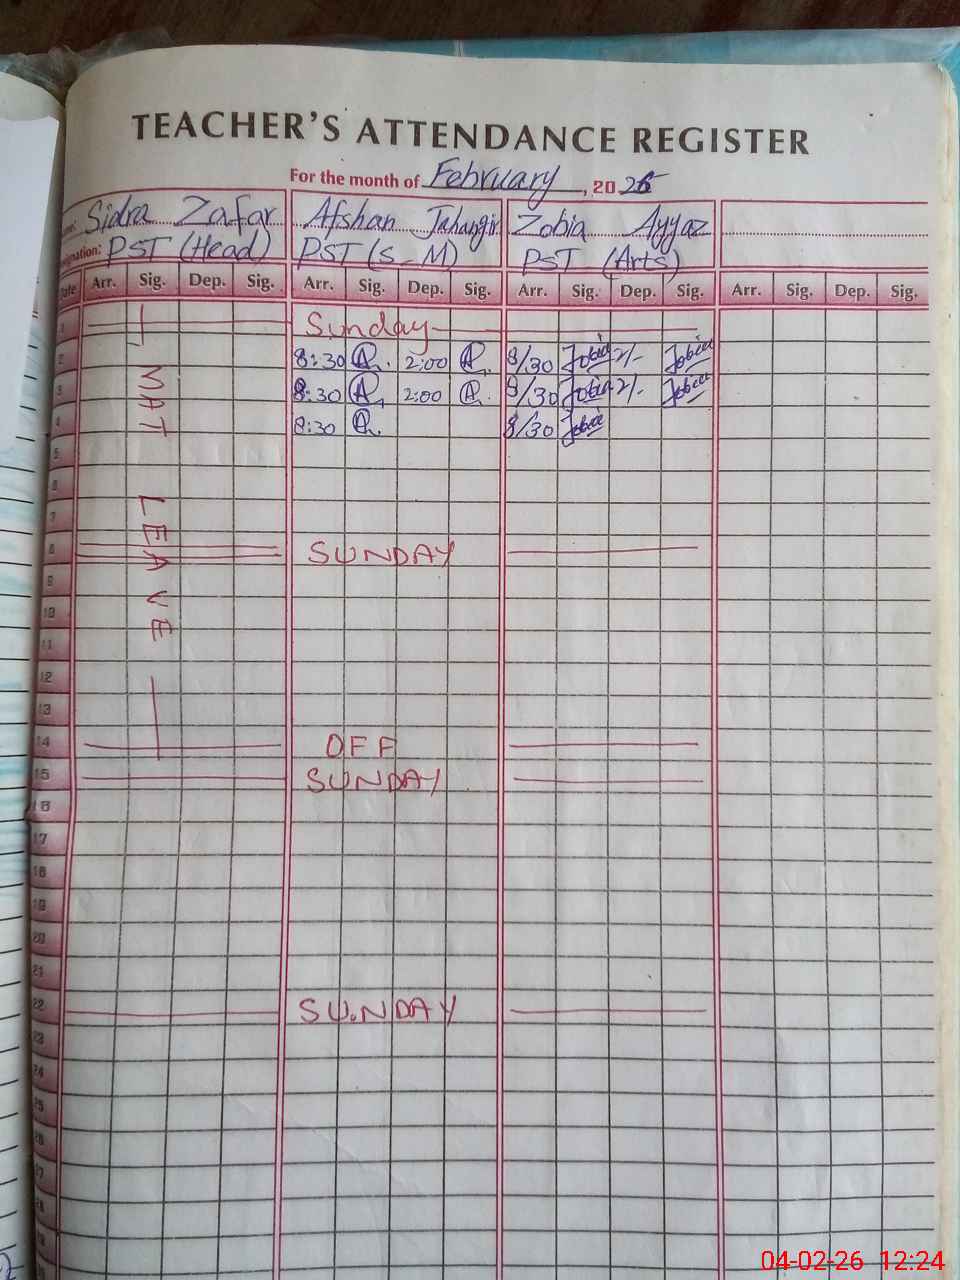 TEACHER'S ATTENDANCE REGISTER
For the month of February, 2026
Sidra Zafar Afshan Jahangir Zobia Ayyaz
Designation: PST (Head) PST (S-M) PST (Arts)
Date Arr. Sig. Dep. Sig. Arr. Sig. Dep. Sig. Arr. Sig. Dep. Sig. Arr. Sig. Dep. Sig.
1 Sunday
2 8:30 2:00 8/30 Zobia 2/- Zobia
3 8:30 2:00 8/30 Zobia 2/- Zobia
4 8:30 8/30 Zobia
5
6
7
8 SUNDAY
9
10
11
12
13
14 OFF
15 SUNDAY
16
17
18
19
20
21
22 SUNDAY
23
24
25
26
27
28
MAT LEAVE
04-02-26 12:24